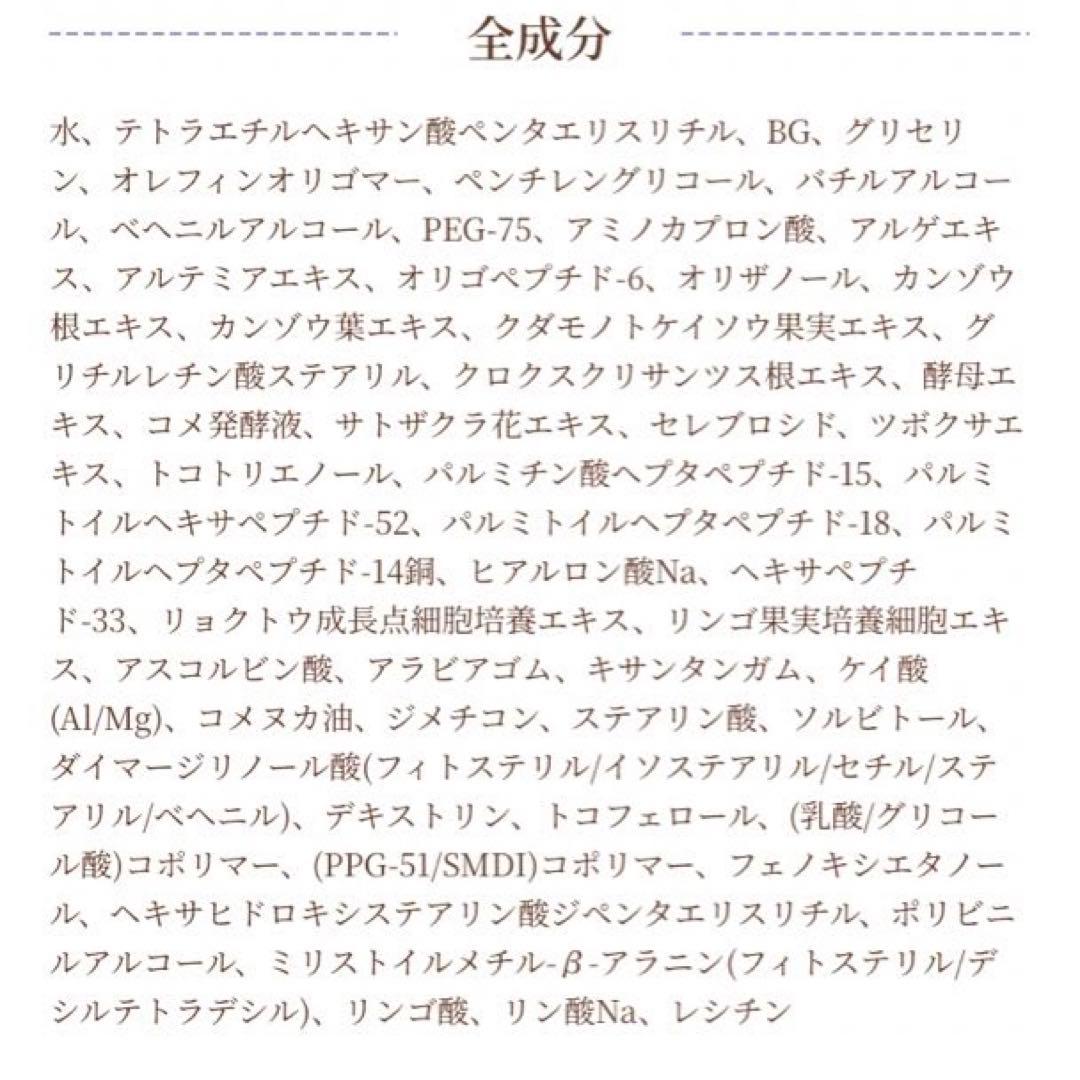 全成分
水、テトラエチルヘキサン酸ペンタエリスリチル、BG、グリセリ
ン、オレフィンオリゴマー、ペンチレングリコール、バチルアルコー
ル、ベヘニルアルコール、PEG-75、アミノカプロン酸、アルゲエキ
ス、アルテミアエキス、オリゴペプチド-6、オリザノール、カンゾウ
根エキス、カンゾウ葉エキス、クダモノトケイソウ果実エキス、グ
リチルレチン酸ステアリル、クロクスクリサンツス根エキス、酵母エ
キス、コメ発酵液、サトザクラ花エキス、セレブロシド、ツボクサエ
キス、トコトリエノール、パルミチン酸ヘプタペプチド-15、パルミ
トイルヘキサペプチド-52、パルミトイルヘプタペプチド-18、パルミ
トイルヘプタペプチド-14銅、ヒアルロン酸Na、ヘキサペプチ
ド-33、リョクトウ成長点細胞培養エキス、リンゴ果実培養細胞エキ
ス、アスコルビン酸、アラビアゴム、キサンタンガム、ケイ酸
(Al/Mg)、コメヌカ油、ジメチコン、ステアリン酸、ソルビトール、
ダイマージリノール酸(フィトステリル/イソステアリル/セチル/ステ
アリル/ベヘニル)、デキストリン、トコフェロール、(乳酸/グリコー
ル酸)コポリマー、(PPG-51/SMDI)コポリマー、フェノキシエタノー
ル、ヘキサヒドロキシステアリン酸ジペンタエリスリチル、ポリビニ
ルアルコール、ミリストイルメチル-β-アラニン(フィトステリル/デ
シルテトラデシル)、リンゴ酸、リン酸Na、レシチン